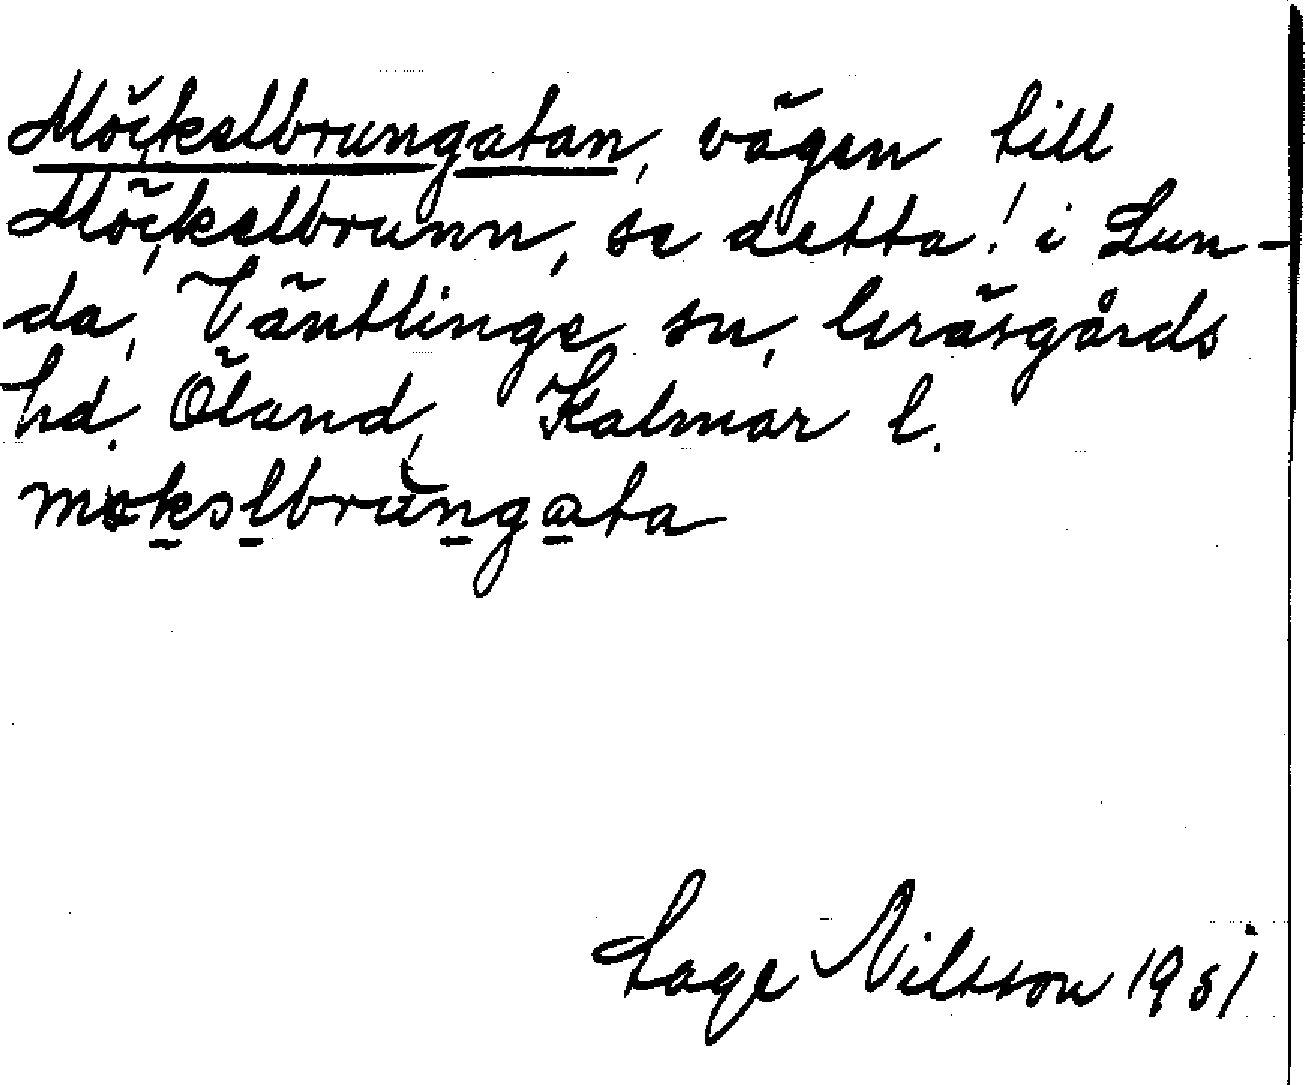 Möckelbrungatan, vägen till
Möckelbrunn, se detta! i Lun-
da, Väntlinge sn, Gräsgårds
hd. Öland, Kalmar l.
Tage Nilsson 1951